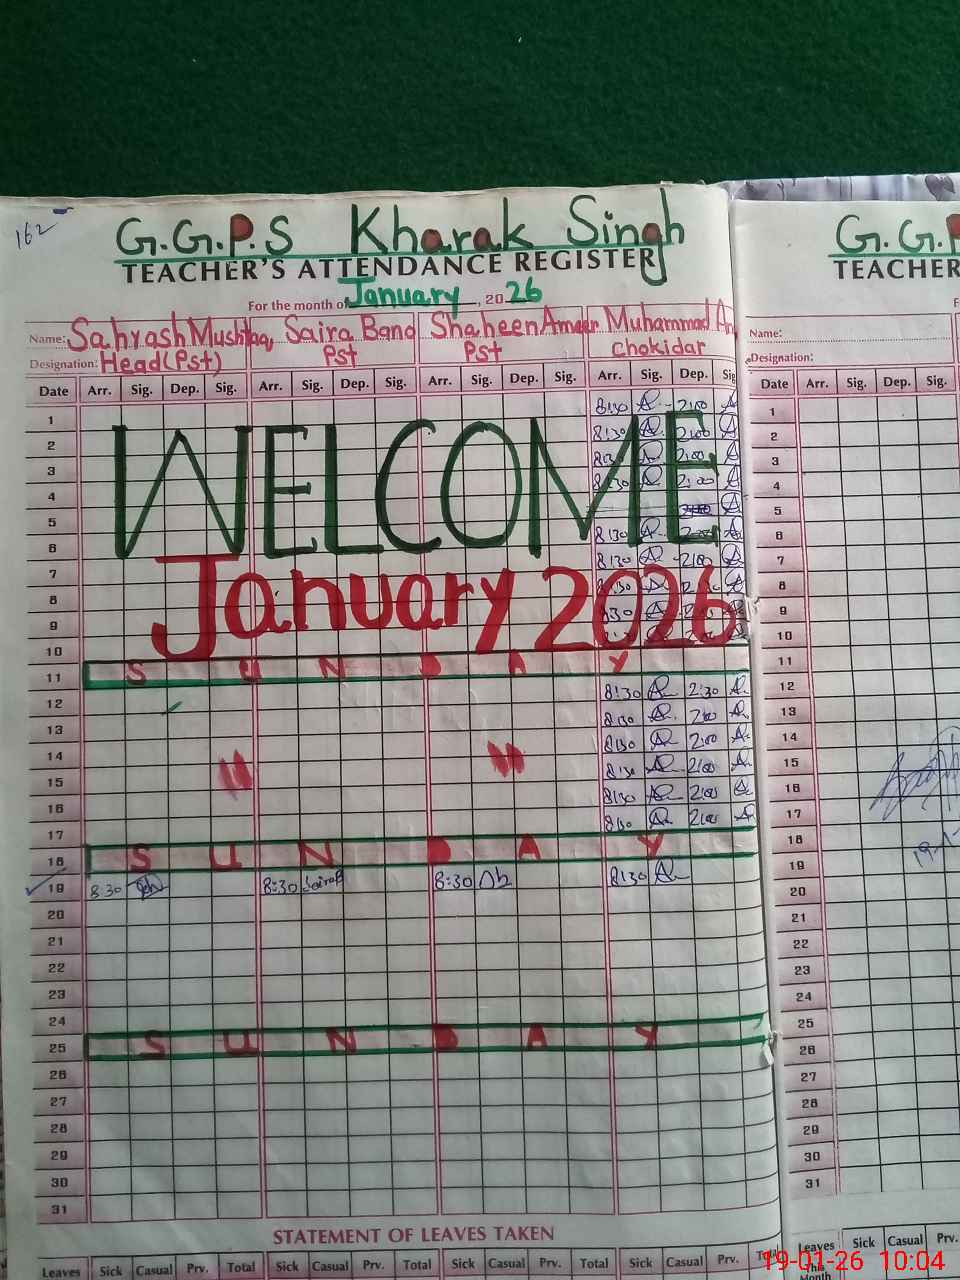 162
G.G.P.S Kharak Singh
TEACHER'S ATTENDANCE REGISTER
For the month of January, 2026
Name: Sahrash Mushtaq Saira Bano Shaheen Ameer Muhammad
Designation: Head(Pst) Pst Pst Chokidar
Date Arr. Sig. Dep. Sig. Arr. Sig. Dep. Sig. Arr. Sig. Dep. Sig. Arr. Sig. Dep. Sig
1 8:30 2:00
2 8:30 2:00
3 8:30 2:00
4 8:30 2:00
5
6 8:30
7 8:30 2:00
8 8:30
9 8:30
10
WELCOME
January 2026
11 SUNDAY
12 8:30 2:30
13 8:30 2:00
14 8:30 2:00
15 8:30 2:00
16 8:30 2:00
17 8:30 2:00
18 SUNDAY
19 8:30 8:30 SairaB 8:30 8:30
20
21
22
23
24
25 SUNDAY
26
27
28
29
30
31
STATEMENT OF LEAVES TAKEN
Leaves Sick Casual Prv. Total Sick Casual Prv. Total Sick Casual Prv. Total Sick Casual Prv. Total
G.G.P
TEACHER
F
Name:
Designation:
Date Arr. Sig. Dep. Sig.
1
2
3
4
5
6
7
8
9
10
11
12
13
14
15
16
17
18
19
20
21
22
23
24
25
26
27
28
29
30
31
Leaves This Month Sick Casual Prv.
19-01-26 10:04